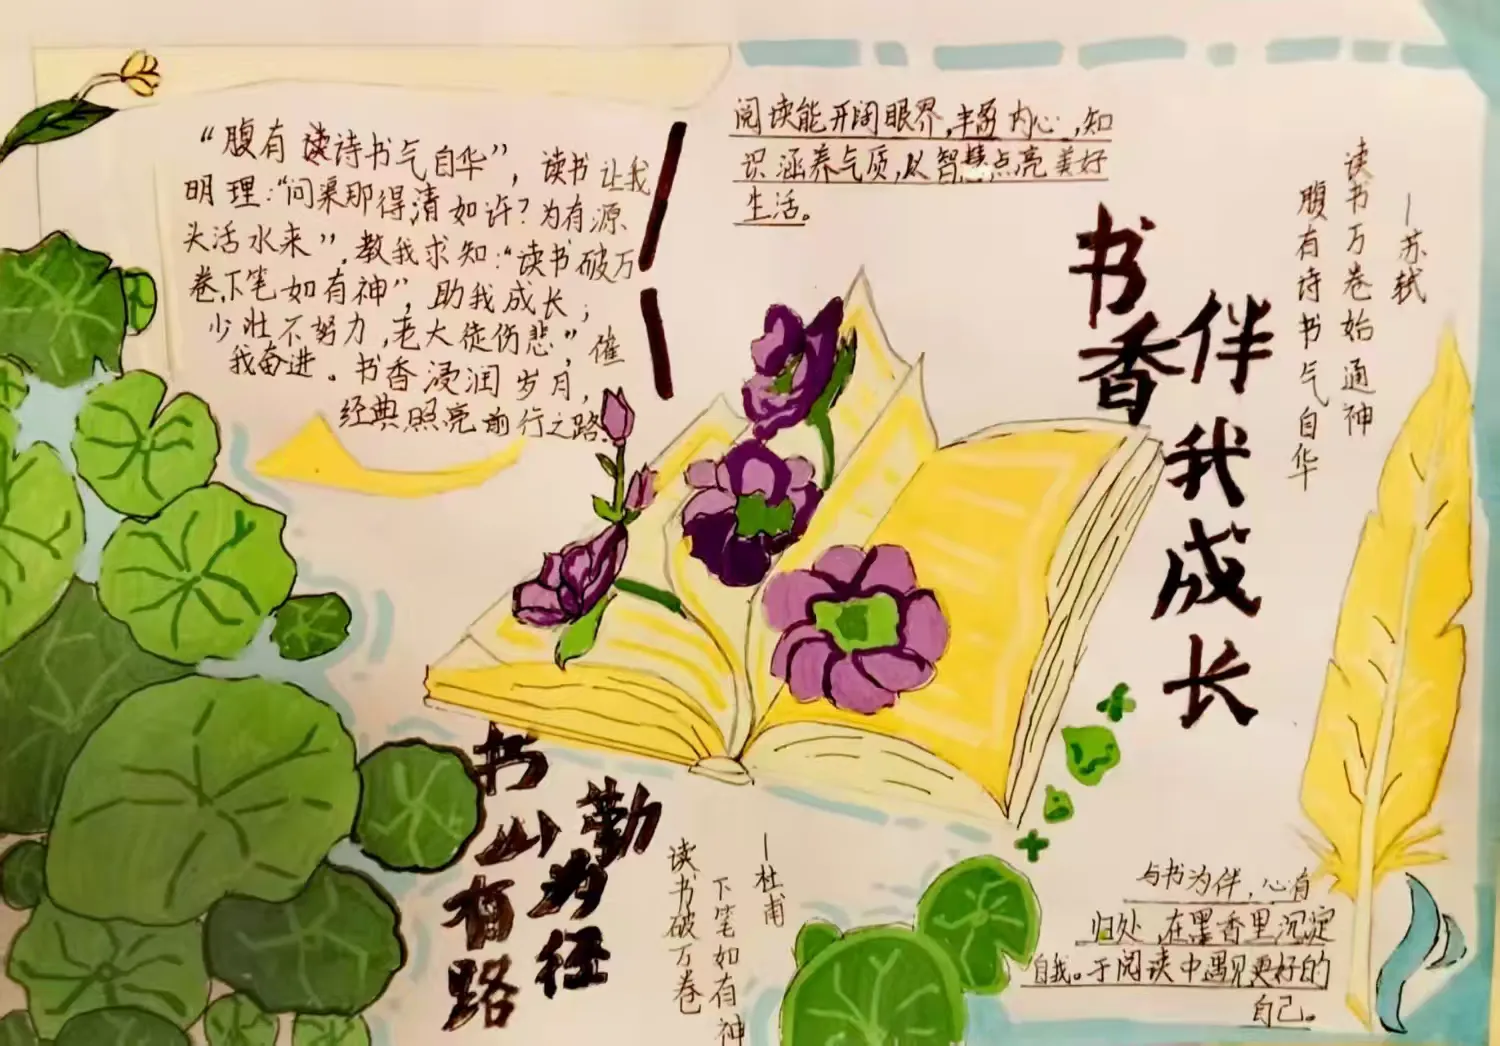 “腹有读诗书气自华”，读书让我
明理：“问渠那得清如许？为有源
头活水来”，教我求知：“读书破万
卷，下笔如有神”，助我成长；
少壮不努力，老大徒伤悲”，催
我奋进。书香浸润岁月，
经典照亮前行之路。
阅读能开阔眼界，丰盈内心，知
识涵养气质，以智慧点亮美好
生活。
书香
伴我成长
—苏轼
读书万卷始通神
腹有诗书气自华
书山有路
勤为径
—杜甫
读书破万卷
下笔如有神
与书为伴，心有
归处，在墨香里沉淀
自我。于阅读中遇见更好的
自己。